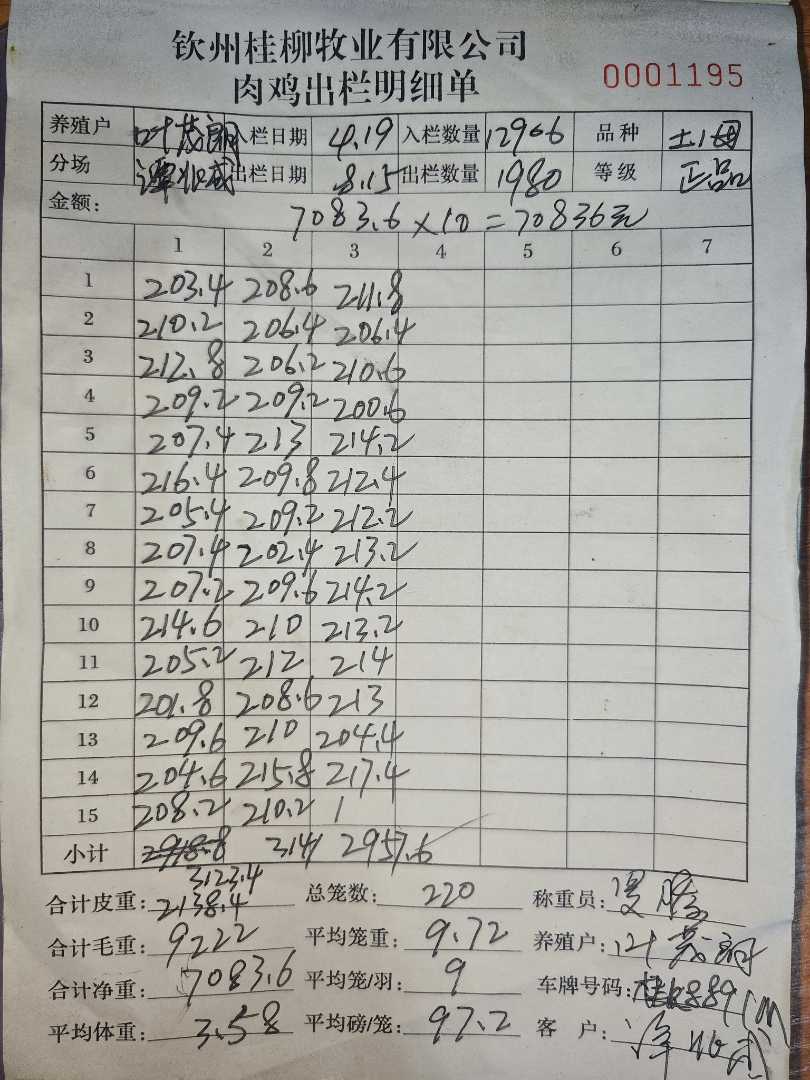 钦州桂柳牧业有限公司
肉鸡出栏明细单 0001195
养殖户 叶茂朗 入栏日期 4.19 入栏数量 12906 品种 土1母
分场 出栏日期 8.15 出栏数量 1980 等级 正品
金额: 7083.6×10=70836元
1 2 3 4 5 6 7
1 203.4 208.6 211.8
2 210.2 206.4 206.4
3 212.8 206.2 210.6
4 209.2 209.2 200.6
5 207.4 213 214.2
6 216.4 209.8 212.4
7 205.4 209.2 212.2
8 207.4 202.4 213.2
9 207.2 209.6 214.2
10 214.6 210 213.2
11 205.2 212 214
12 201.8 208.6 213
13 209.6 210 204.4
14 204.6 215.8 217.4
15 208.2 210.2 1
小计 2918.8 3141 2957.6
3123.4
合计皮重: 2138.4 总笼数: 220 称重员:
合计毛重: 9222 平均笼重: 9.72 养殖户: 叶茂朗
合计净重: 7083.6 平均笼/羽: 9 车牌号码:
平均体重: 3.58 平均磅/笼: 97.2 客户: